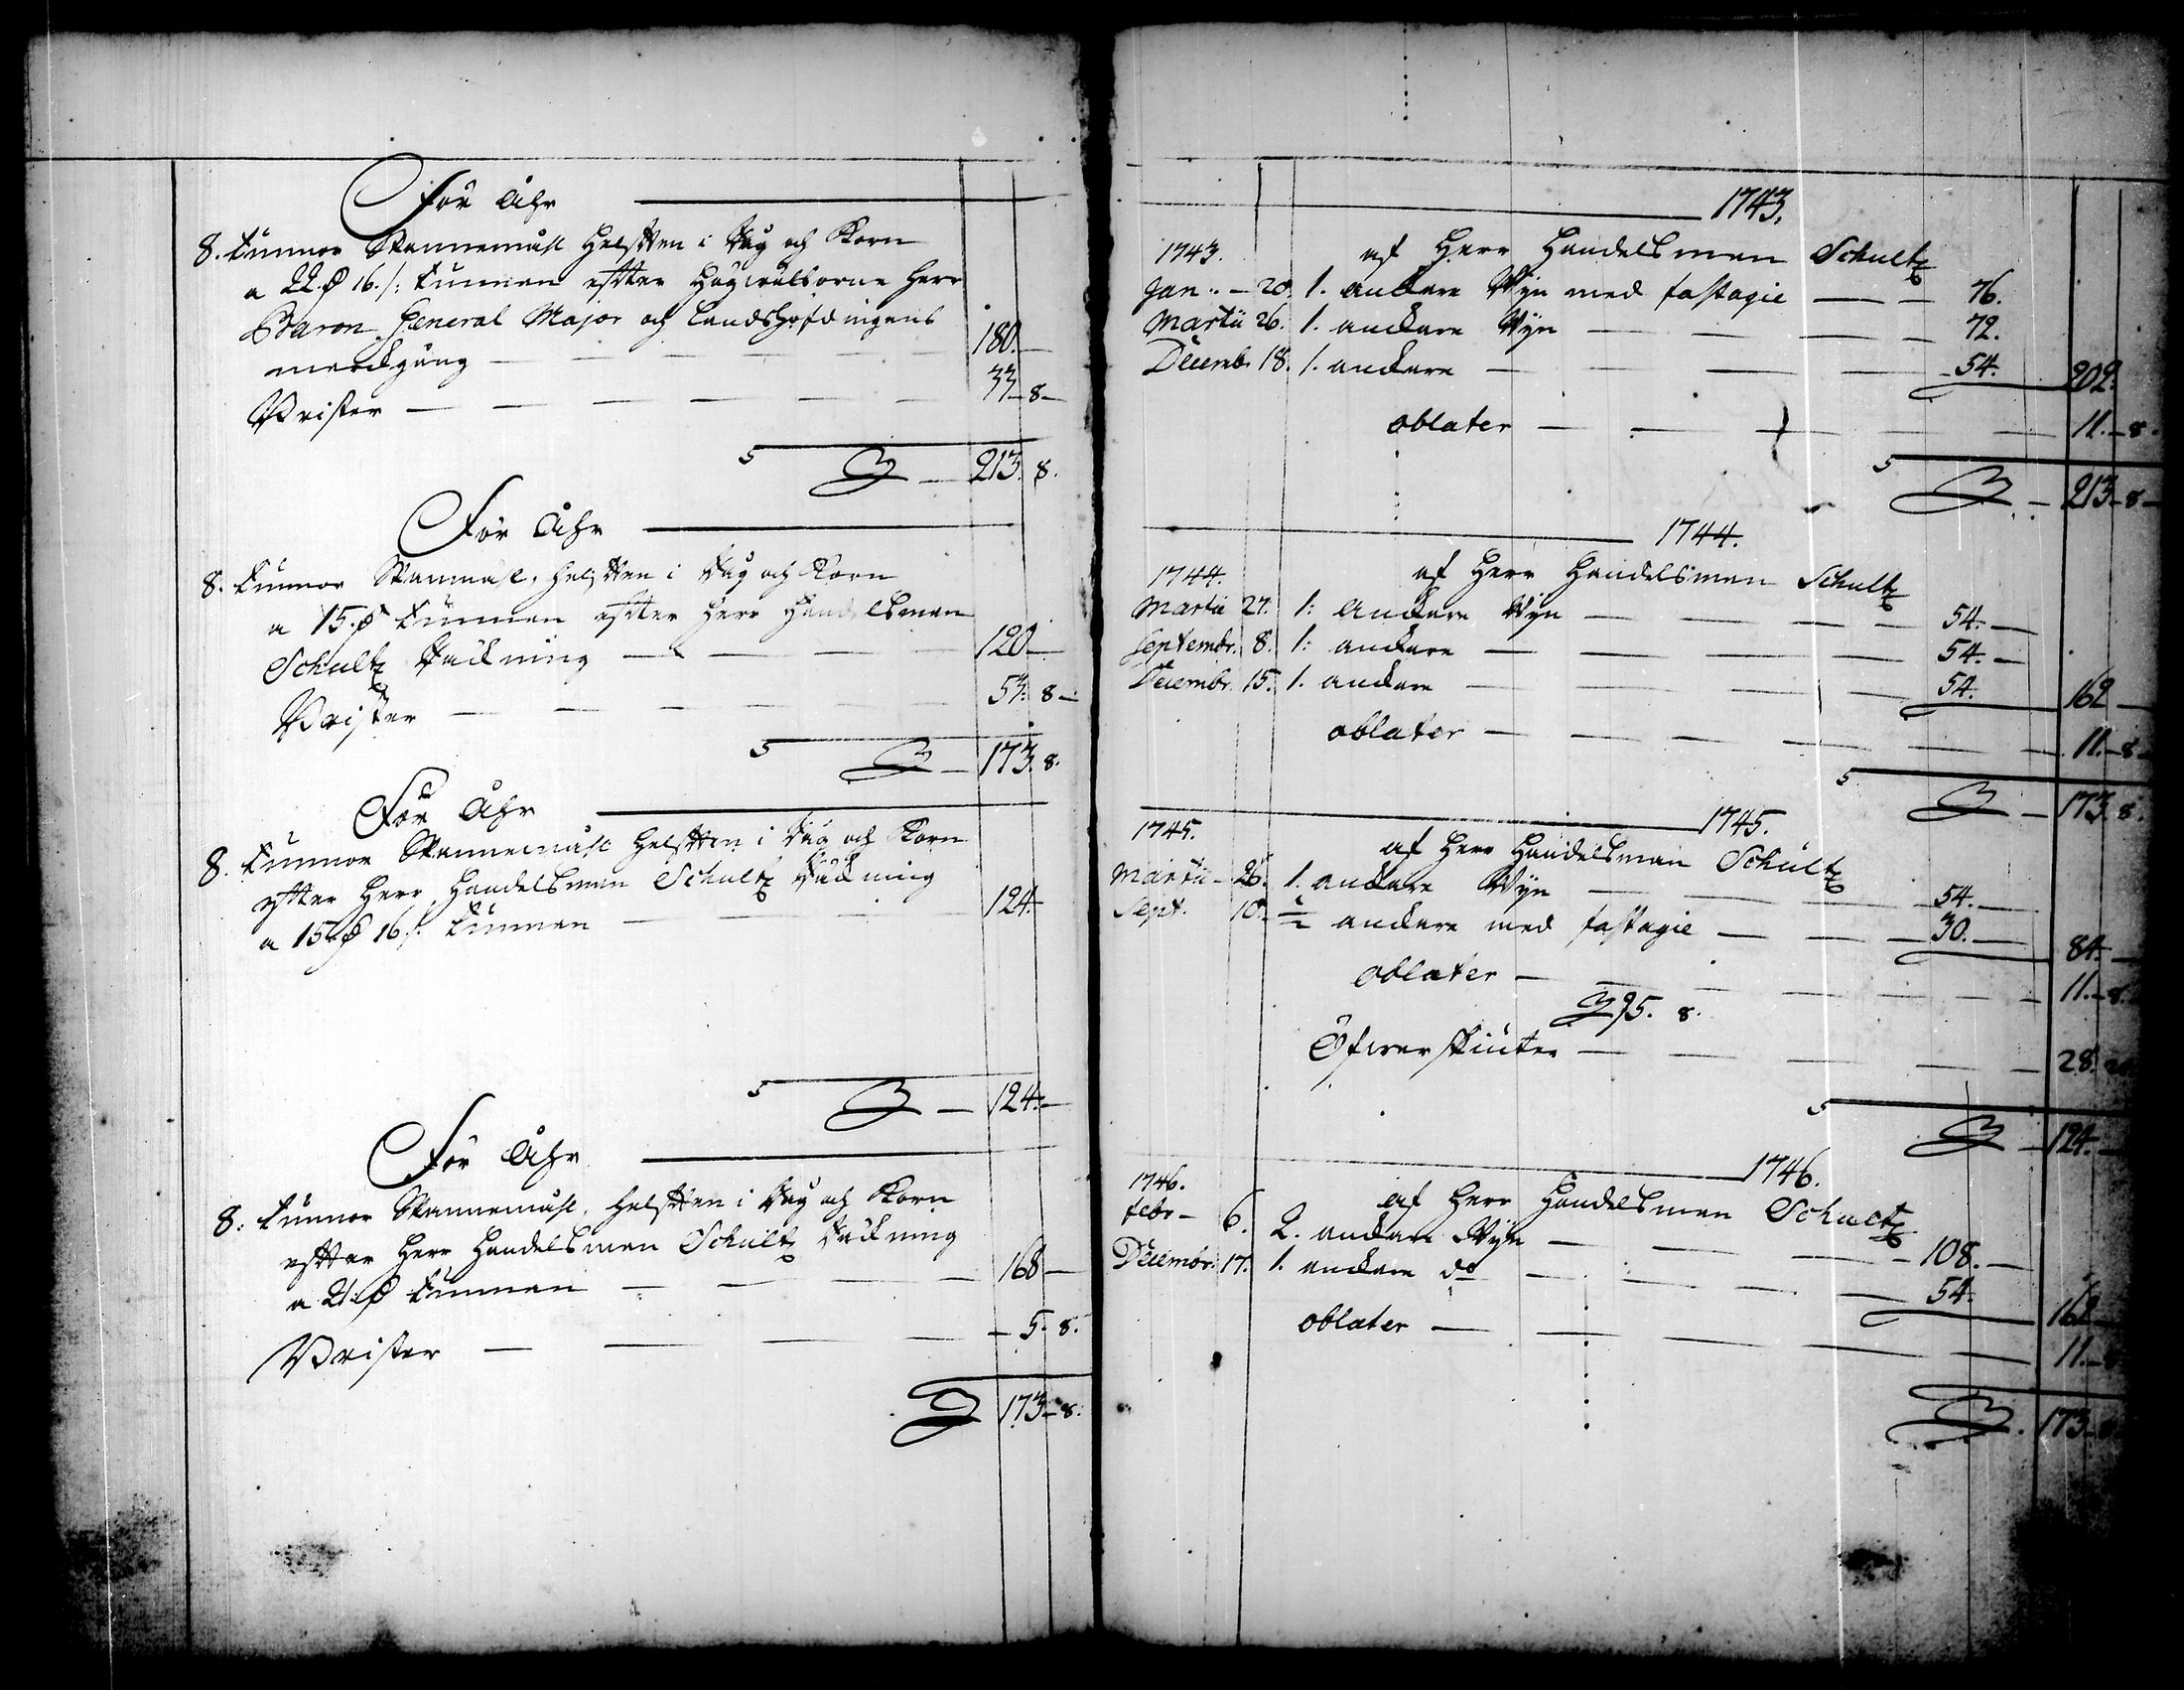 För Åhr
8. tunnor Spannemåhl helften i Råg och Korn
a 22. d 16./: tunnan efter Högwälborne Herr
Baron, General Major och Landshöfdingens
markgång — 180. —
Brister — 33 — 8 —
S 213. 8.
För Åhr
8. tunnor Spanmåhl, helften i Råg och Korn
a 15. d tunnan efter Herr Handelsman
Schultz Räckning — 120 —
Brister — 53. 8 —
S — 173. 8.
För Åhr
8. tunnor Spannemåhl helften i Råg och Korn
efter Herr Handelsman Schultz Räckning
a 15. d 16/: tunnan — 124. —
S — 124. —
För Åhr
8: tunnor Spannemåhl, helften i Råg och Korn
efter Herr Handelsman Schultz Räckning
a 21. d tunnan — 168 —
Brister — 5. 8.
S 173 — 8.
1743.
1743. af Herr Handelsman Schultz
Jan. — 20. 1. anckare Wyn med fastagie — 76.
Martii 26. 1. anckare Wyn — 72.
Decemb. 18. 1. anckare — 54. 202.
oblater — 11. — 8.
S — 213 — 8 —
1744.
1744. af Herr Handelsman Schultz
Martii 27. 1: anckare Wyn — 54. —
Septembr. 8. 1: anckare — 54. —
Decembr. 15. 1. anckare — 54. 162 —
oblater — 11. — 8 —
S — 173. 8.
1745.
1745. af Herr Handelsman Schultz
Martii — 26. 1. anckare Wyn — 54. —
Sept. 10. ½ anckare med fastagie — 30. — 84. —
oblater — 11. — 8.
S 95. 8.
Öfwerskiuter — 28.
S — 124. —
1746.
1746. af Herr Handelsman Schultz
Febr — 6. 2. anckare Wyn — 108. —
Decembr. 17. 1. anckare do — 54. 162 —
oblater — 11. — 8
S. 173 — 8